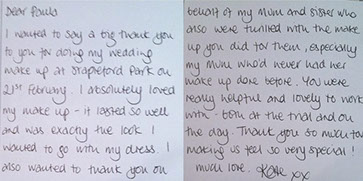 Dear Paula
I wanted to say a big thank you
to you for doing my wedding
make up at Stapleford Park on
21st February. I absolutely loved
my make up - it lasted so well
and was exactly the look I
wanted to go with my dress. I
also wanted to thank you on
behalf of my mum and sister who
also were thrilled with the make
up you did for them, especially
my mum who'd never had her
make up done before. You were
really helpful and lovely to work
with - both at the trial and on
the day. Thank you so much for
making us feel so very special!
Much love. Kate xx